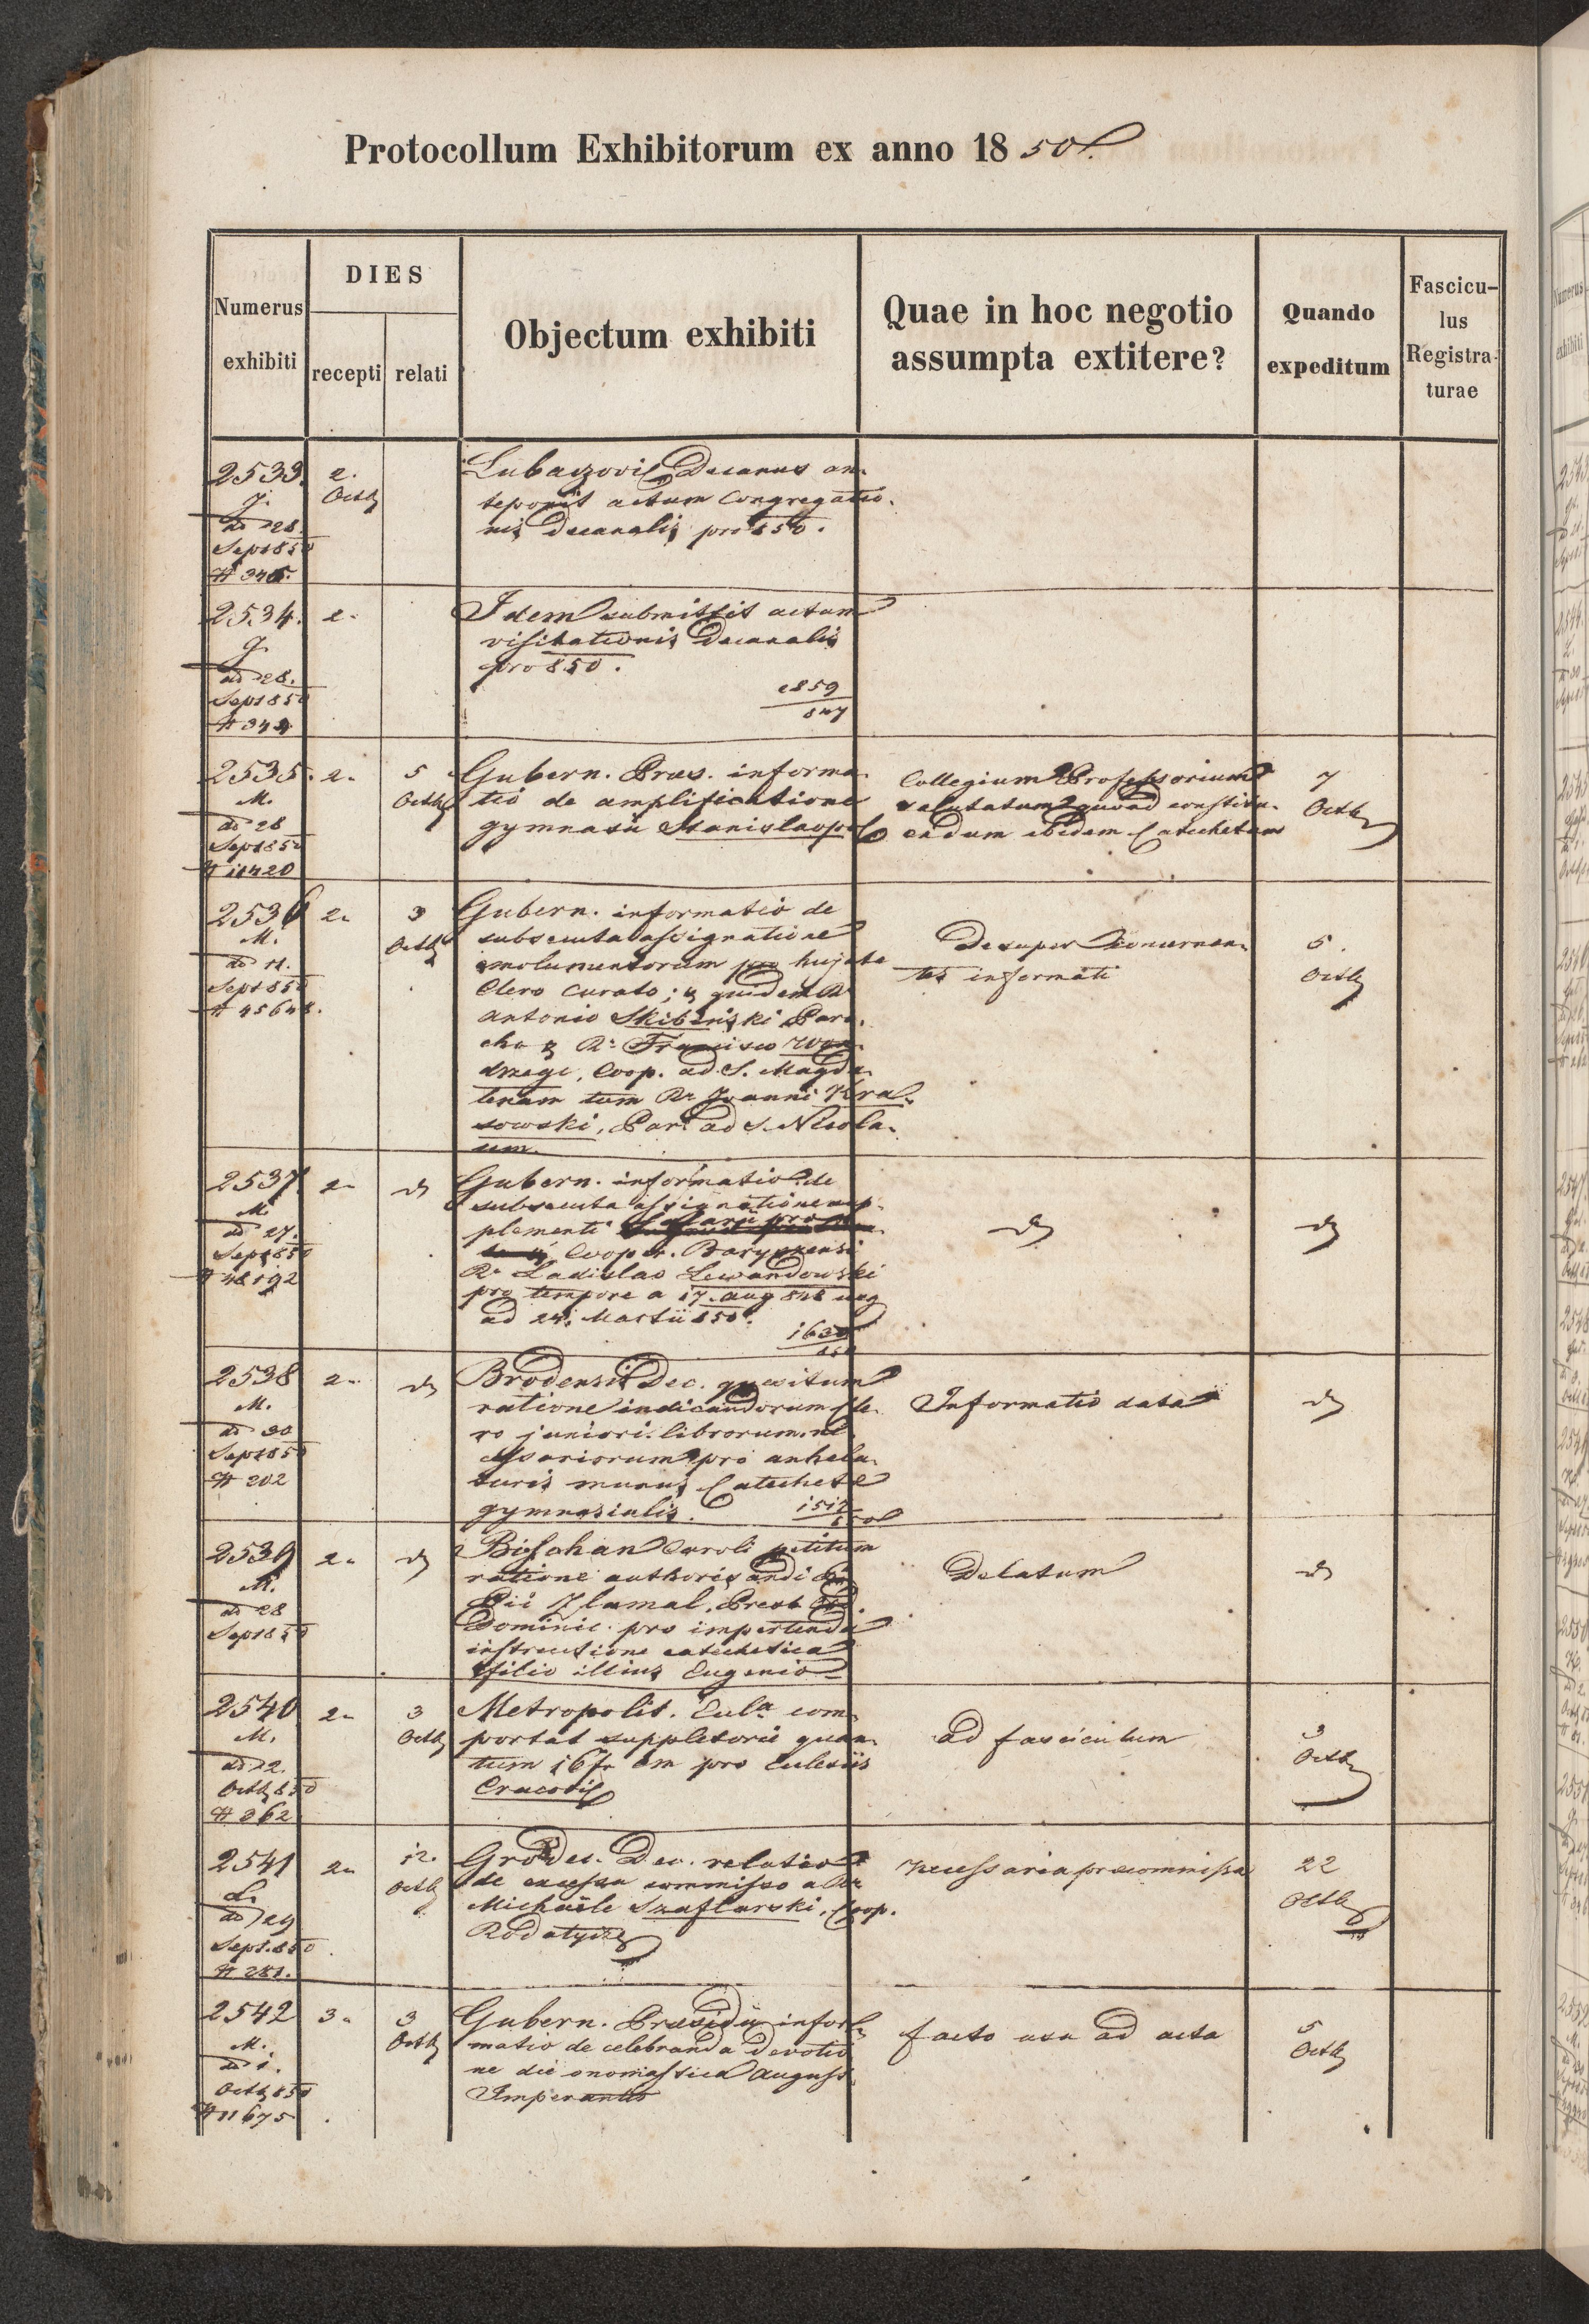 Protocollum Exhibitorum ex anno 18 50
Numerus exhibiti
DIES
recepti
relati
Objectum exhibiti
Quae in hoc negotio
assumpta extitere?
Quando
expeditum
Fascicu-
lus
Registra-
turae
2533.
ad 28.
Sept 850
2.
Octb
Decanus an-
teponit actum Congregatio-
nis Decanalis pro 850.
2534.
ad 28.
Sept 850
2.
Idem submittit actum
visitationis Decanalis
pro 850.
2535.
M.
ad 28
Sept 850
# 11420
2.
5
Octb
Gubern. Præs. informa-
tio de amplificatione
gymnasii Stanislaopol
Collegium Professorium
quoad constitu-
endum ibidem Catechetam
7
Octb
2536
M.
ad 11.
Sept 850
# 45648.
2.
3
Octb
Gubern. informatio de
subsecuta assignatione
emolumentorum pro hujate
Clero Curato; & quidem Rr
Antonio Skibinski Paro-
cho & Rr Francisco
Coop. ad S. Magda-
lenam tum Rr Joanni Kra-
sowski, Par. ad S. Nicola-
um.
Desuper concernen-
tes informati
5.
Octb
2537.
M.
ad 27.
Sept 850
# 48192
2.
Gubern. informatio de
subsecuta assignatione sup-
plementi
Cooper.
Rr Ladislao Lewandowski
pro tempore a 17. Aug 848 usq
ad 24. Martii 850.
2538
M.
ad 30
Sept 850
# 202
2.
Brodensis Dec. quæsitum
ratione indicandorum Cle-
ro juniori librorum ne-
cessariorum pro anhela-
turis munus Catechetæ
gymnasialis.
1512
Informatio data
2539
M.
ad 28
Sept 850
2.
Caroli petitum
ratione authorisandi
Pii
Dominic. pro impertienda
instructione catechetica
filio illius Eugenio
Delatum
2540
M.
ad 2.
Octb 850
# 362
2.
3
Octb
Metropolit. Eccla com-
portat suppletorie quan-
tum 16 fr Cm pro Ecclesiis
Cracovis
ad fasciculum
3
Octb
2541
L.
ad 29
Sept. 850
# 281.
2.
12.
Octb
Grodec. Dec. relatio
de excessu commisso a Rr
Michaële Szaflarski, Coop.
necessaria præcommissa
22
Octb
2542
M.
ad 1.
Octb 850
# 11675
3.
3
Octb
Gubern. Præsidii infor-
matio de celebranda devotio-
ne die onomastica August.
Imperantis
facto usu ad acta
5
Octb